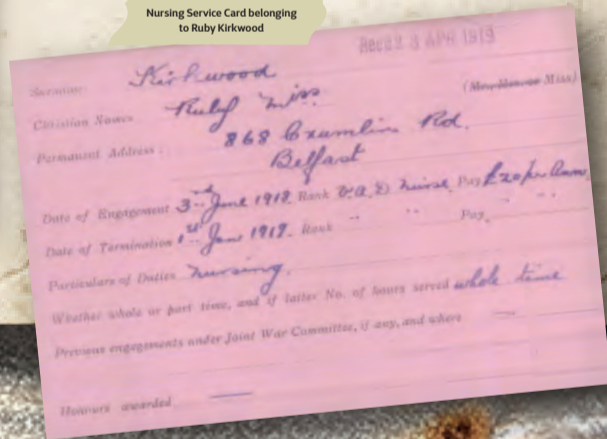 Nursing Service Card belonging
to Ruby Kirkwood
Rec'd 3 APR 1919
Surname Kirkwood
Christian Names Ruby Miss (Mrs. Miss)
Permanent Address : 868 Crumlin Rd.
Belfast
Date of Engagement 3rd June 1918. Rank V.A.D Nurse Pay £20 per Ann
Date of Termination 1st June 1919. Rank " " Pay " "
Particulars of Duties Nursing.
Whether whole or part time, and if latter No. of hours served whole time
Previous engagements under Joint War Committee, if any, and where —
Honours awarded —